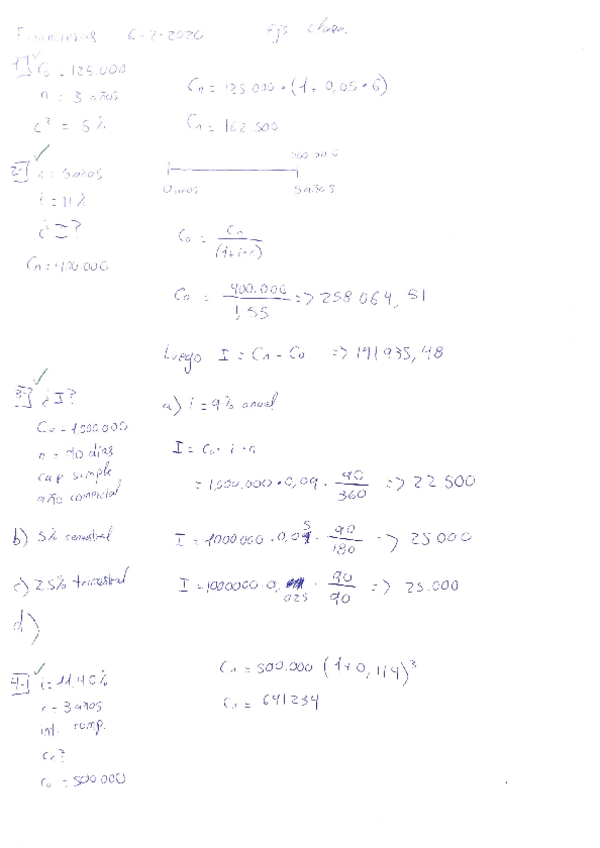 Financieras 6-2-2020 Ejs clase.
1-] C₀ = 125.000
n = 3 años
i² = 5%
Cn = 125.000 · (1 + 0,05 · 6)
Cn = 162.500
2-] n = 5 años
i = 11%
¿I?
Cn = 400.000
400.000
0 años 5 años
C₀ = Cn / (1+i·n)
C₀ = 400.000 / 1,55 => 258064,51
Luego I = Cn - C₀ => 141935,48
3-] ¿I?
C₀ = 1.000.000
n = 90 días
cap simple
año comercial
a) i = 9% anual
I = C₀ · i · n
= 1.000.000 · 0,09 · 90/360 => 22500
b) 5% semestral I = 1000000 · 0,05 · 90/180 => 25000
c) 2.5% trimestral I = 1000000 · 0,025 · 90/90 => 25.000
d)
4-] i = 11,40%
n = 3 años
int. comp.
Cn?
C₀ = 500.000
Cn = 500.000 (1+0,114)³
Cn = 691234